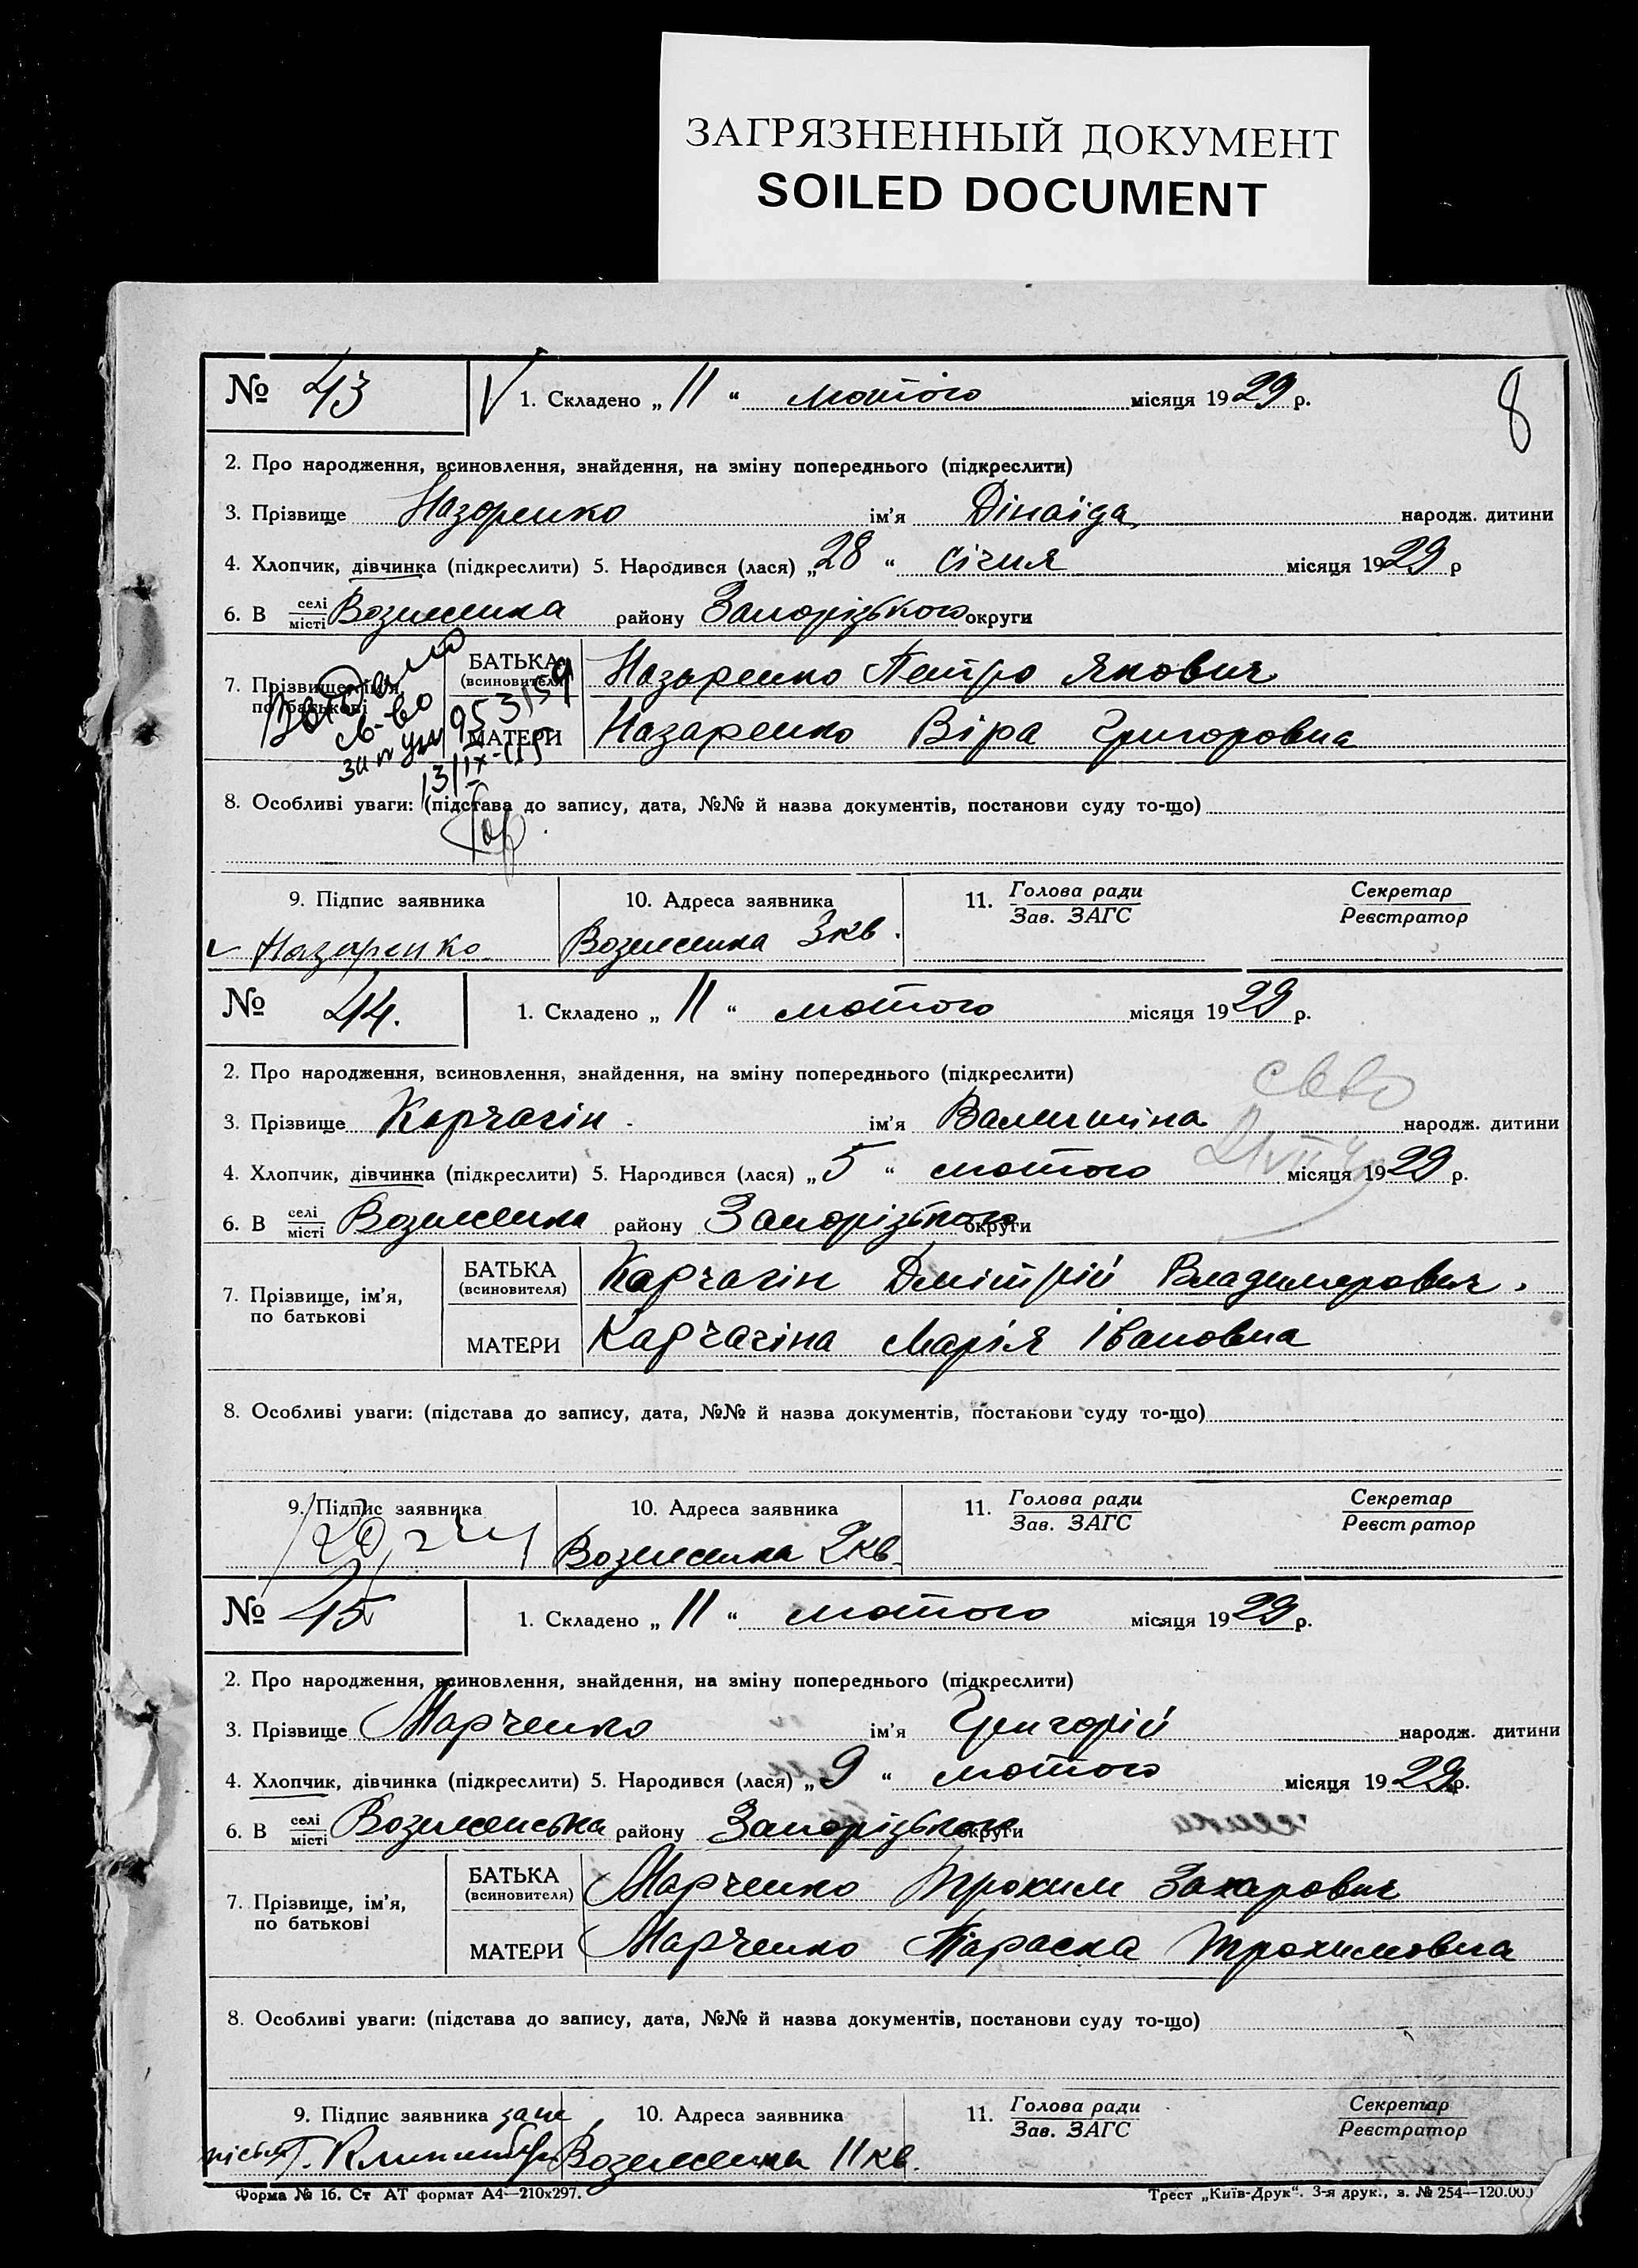 ЗАГРЯЗНЕННЫЙ ДОКУМЕНТ
SOILED DOCUMENT
8
№ 43
1. Складено „ 11 “ лютого місяця 1929 р.
2. Про народження, всиновлення, знайдення, на зміну попереднього (підкреслити)
3. Прізвище Назаренко ім’я Дінаіда народж. дитини
4. Хлопчик, дівчинка (підкреслити) 5. Народився (лася) „28 “ січня місяця 1929 р
6. В селі місті району Запорізького округи
7. Прізвище, ім’я, по батькові
БАТЬКА (всиновителя) Назаренко Петро Якович
МАТЕРИ Назаренко Віра Григоровна
св-во
953159
13/IX-
8. Особливі уваги: (підстава до запису, дата, №№ й назва документів, постанови суду то-що)
9. Підпис заявника 10. Адреса заявника 11. Голова ради Зав. ЗАГС Секретар Реєстратор
Назаренко 3 кв.
№ 44.
1. Складено „ 11 “ лютого місяця 1929 р.
2. Про народження, всиновлення, знайдення, на зміну попереднього (підкреслити)
св-во
3. Прізвище Карчагін ім’я Валентіна народж. дитини
4. Хлопчик, дівчинка (підкреслити) 5. Народився (лася) „ 5 “ лютого місяця 1929 р.
6. В селі місті району Запорізького округи
7. Прізвище, ім’я, по батькові
БАТЬКА (всиновителя) Карчагін Дмітрій Владимерович.
МАТЕРИ Карчагіна Марія Івановна
8. Особливі уваги: (підстава до запису, дата, №№ й назва документів, постанови суду то-що)
9. Підпис заявника 10. Адреса заявника 11. Голова ради Зав. ЗАГС Секретар Реєстратор
2 кв.
№ 45
1. Складено „ 11 “ лютого місяця 1929 р.
2. Про народження, всиновлення, знайдення, на зміну попереднього (підкреслити)
3. Прізвище Марченко ім’я Григорій народж. дитини
4. Хлопчик, дівчинка (підкреслити) 5. Народився (лася) „ 9 “ лютого місяця 1929 р.
6. В селі місті району Запорізького округи
7. Прізвище, ім’я, по батькові
БАТЬКА (всиновителя) Марченко Трохим Захарович
МАТЕРИ Марченко Параска Трохимовна
8. Особливі уваги: (підстава до запису, дата, №№ й назва документів, постанови суду то-що)
9. Підпис заявника 10. Адреса заявника 11. Голова ради Зав. ЗАГС Секретар Реєстратор
11 кв.
Форма № 16. Ст АТ формат А4—210х297. Трест „Київ-Друк“. 3-я друк., з. № 254—120.000